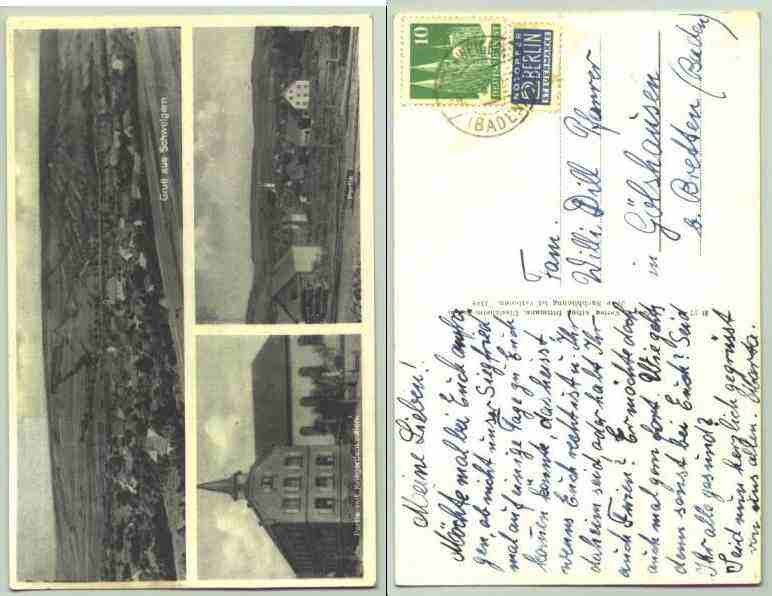 Gruß aus Schweigern
Partie
Partie mit Kriegerdenkmal
10
DEUTSCHE POST
NOTOPFER
2 BERLIN
STEUERMARKE
(BADEN)
Fam.
Willi Dill Pfarrer
in Gölshausen
b. Bretten (Baden)
Meine Lieben!
Möchte mal bei Euch anfra
gen, ob nicht unser Siegfried
mal auf einige Tage zu Euch
kommen könnte, das heisst
wenns Euch recht ist u. Ihr
daheim seid oder habt Ihr
auch Ferien? Er möchte doch
auch mal gern dort. Wie gehts
denn sonst bei Euch? Seid
Ihr alle gesund?
Seid nun herzlich gegrüsst
von uns allen.